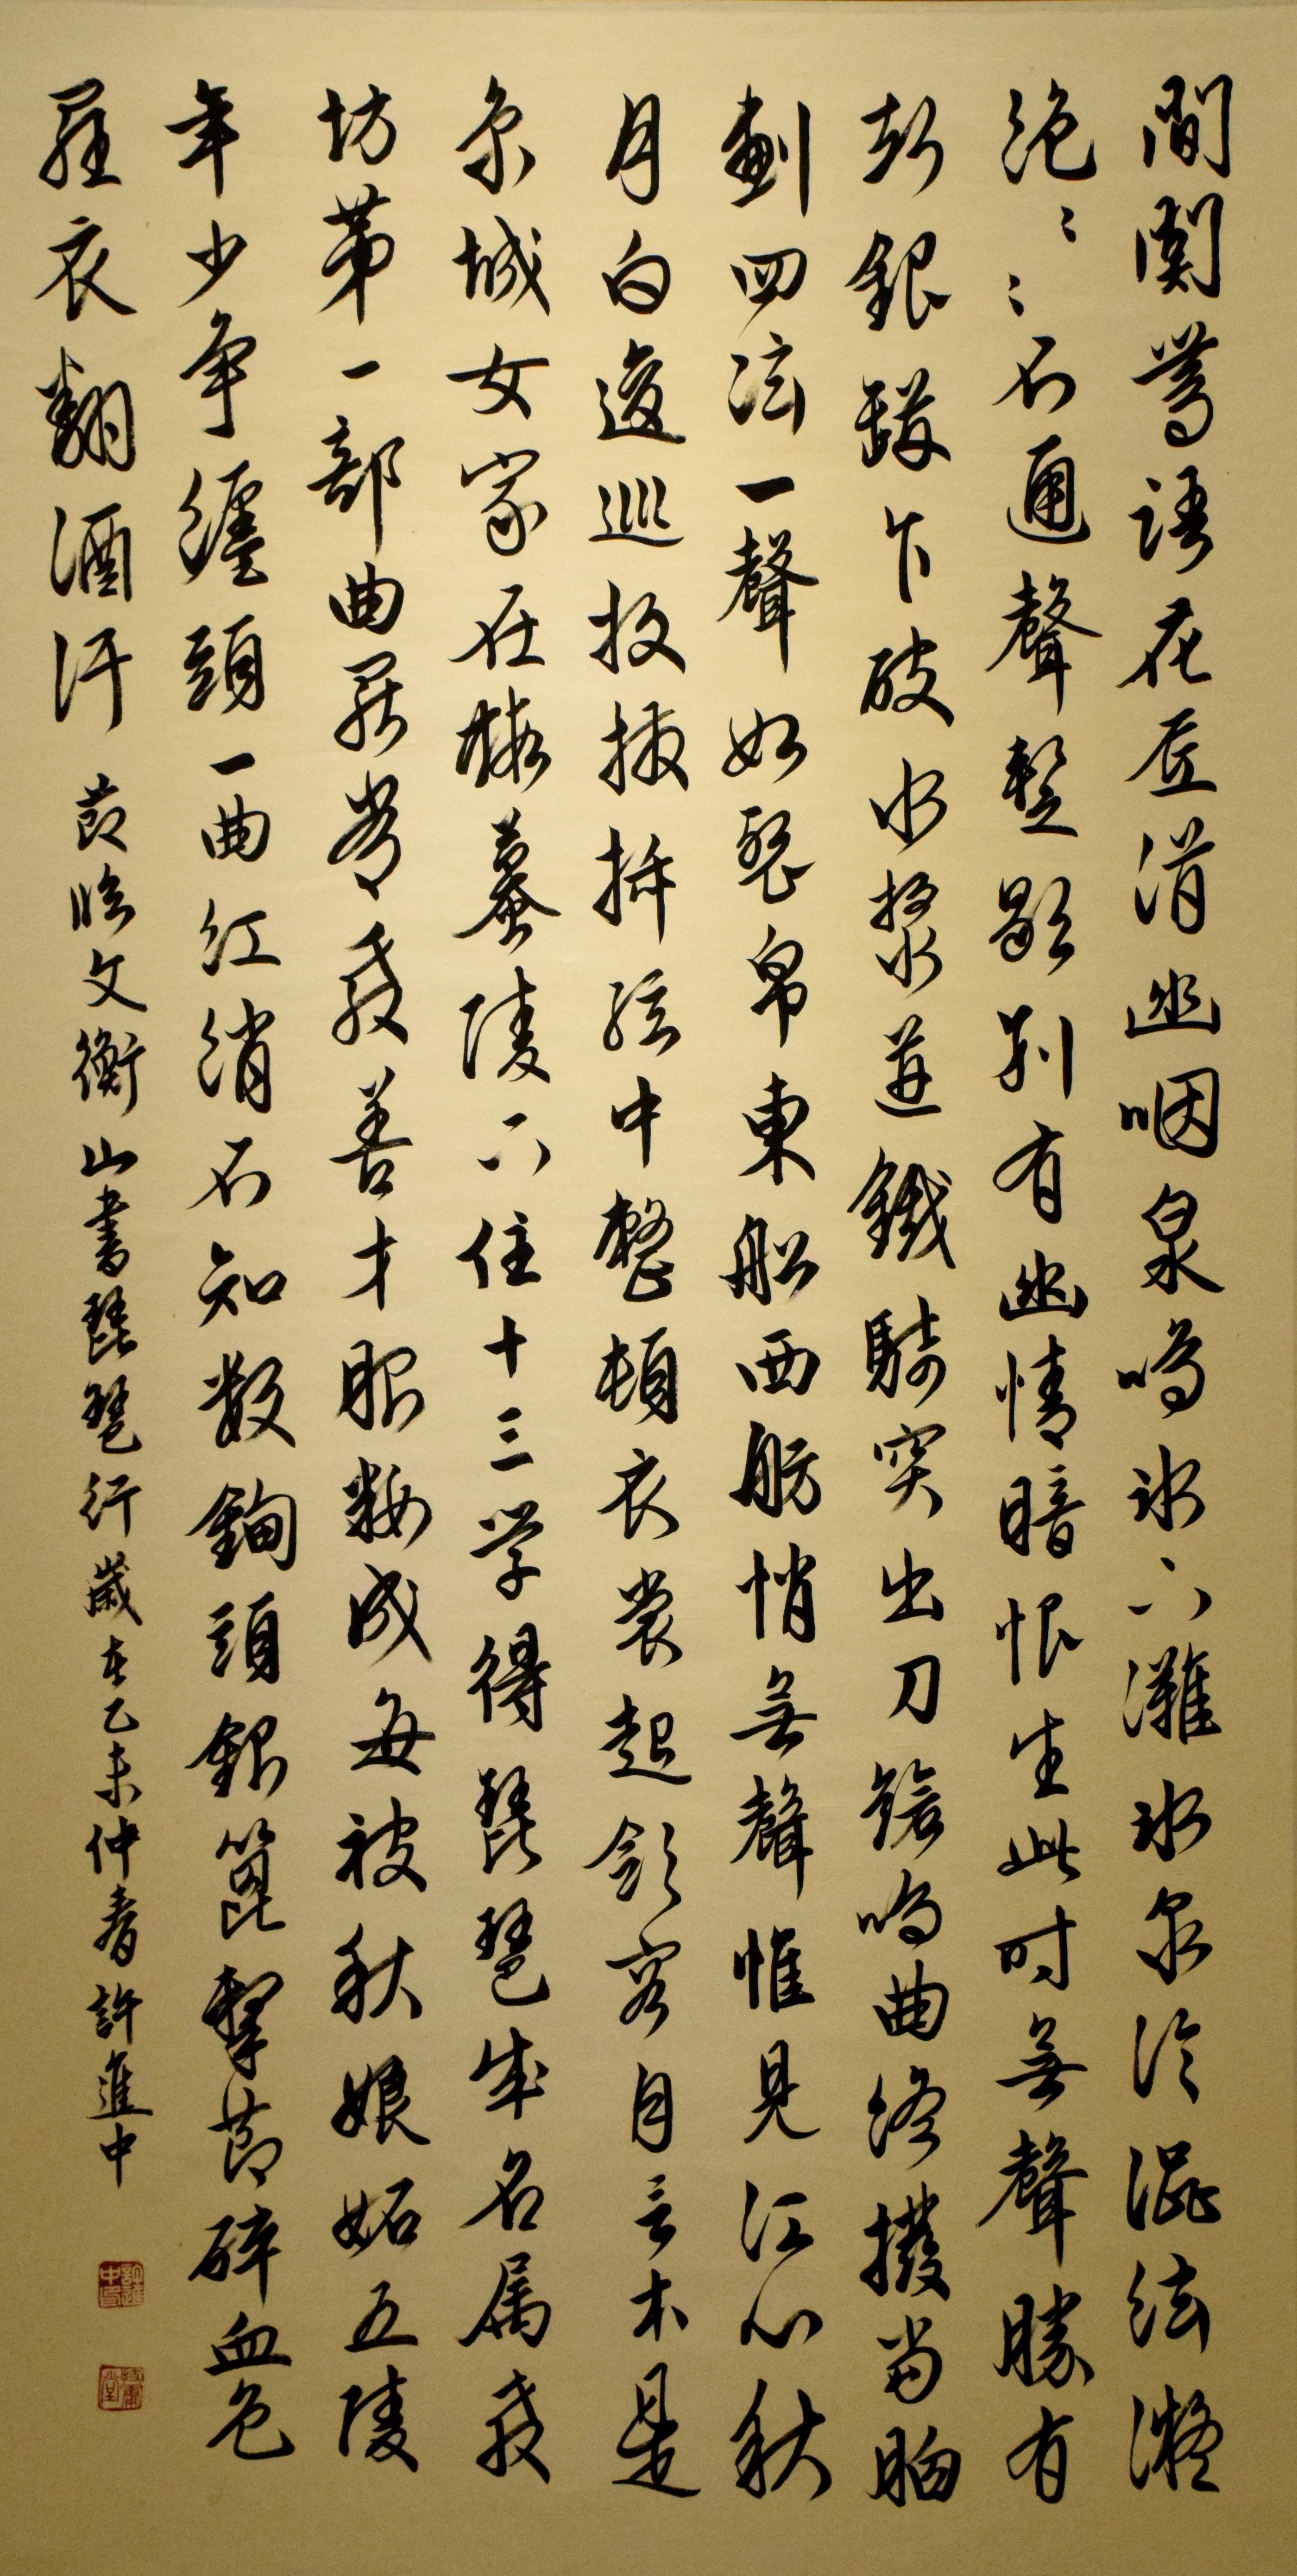 間關鶯語花底滑幽咽泉鳴冰下灘冰泉冷澀絃凝
絕〻〻不通聲暫歇別有幽情暗恨生此時無聲勝有
聲銀瓶乍破水漿迸鐵騎突出刀鎗鳴曲終撥當胸
劃四弦一聲如裂帛東船西舫悄無聲惟見江心秋
月白逡巡放撥插絃中整頓衣裳起斂容自言本是
京城女家在蝦蟇陵下住十三学得琵琶成名属教
坊第一部曲罷常教善才服粧成每被秋娘妬五陵
年少争纏頭一曲紅綃不知数鈿頭銀篦擊節碎血色
羅衣翻酒汙
節臨文衡山書琵琶行歲在乙未仲春許進中
許進中印